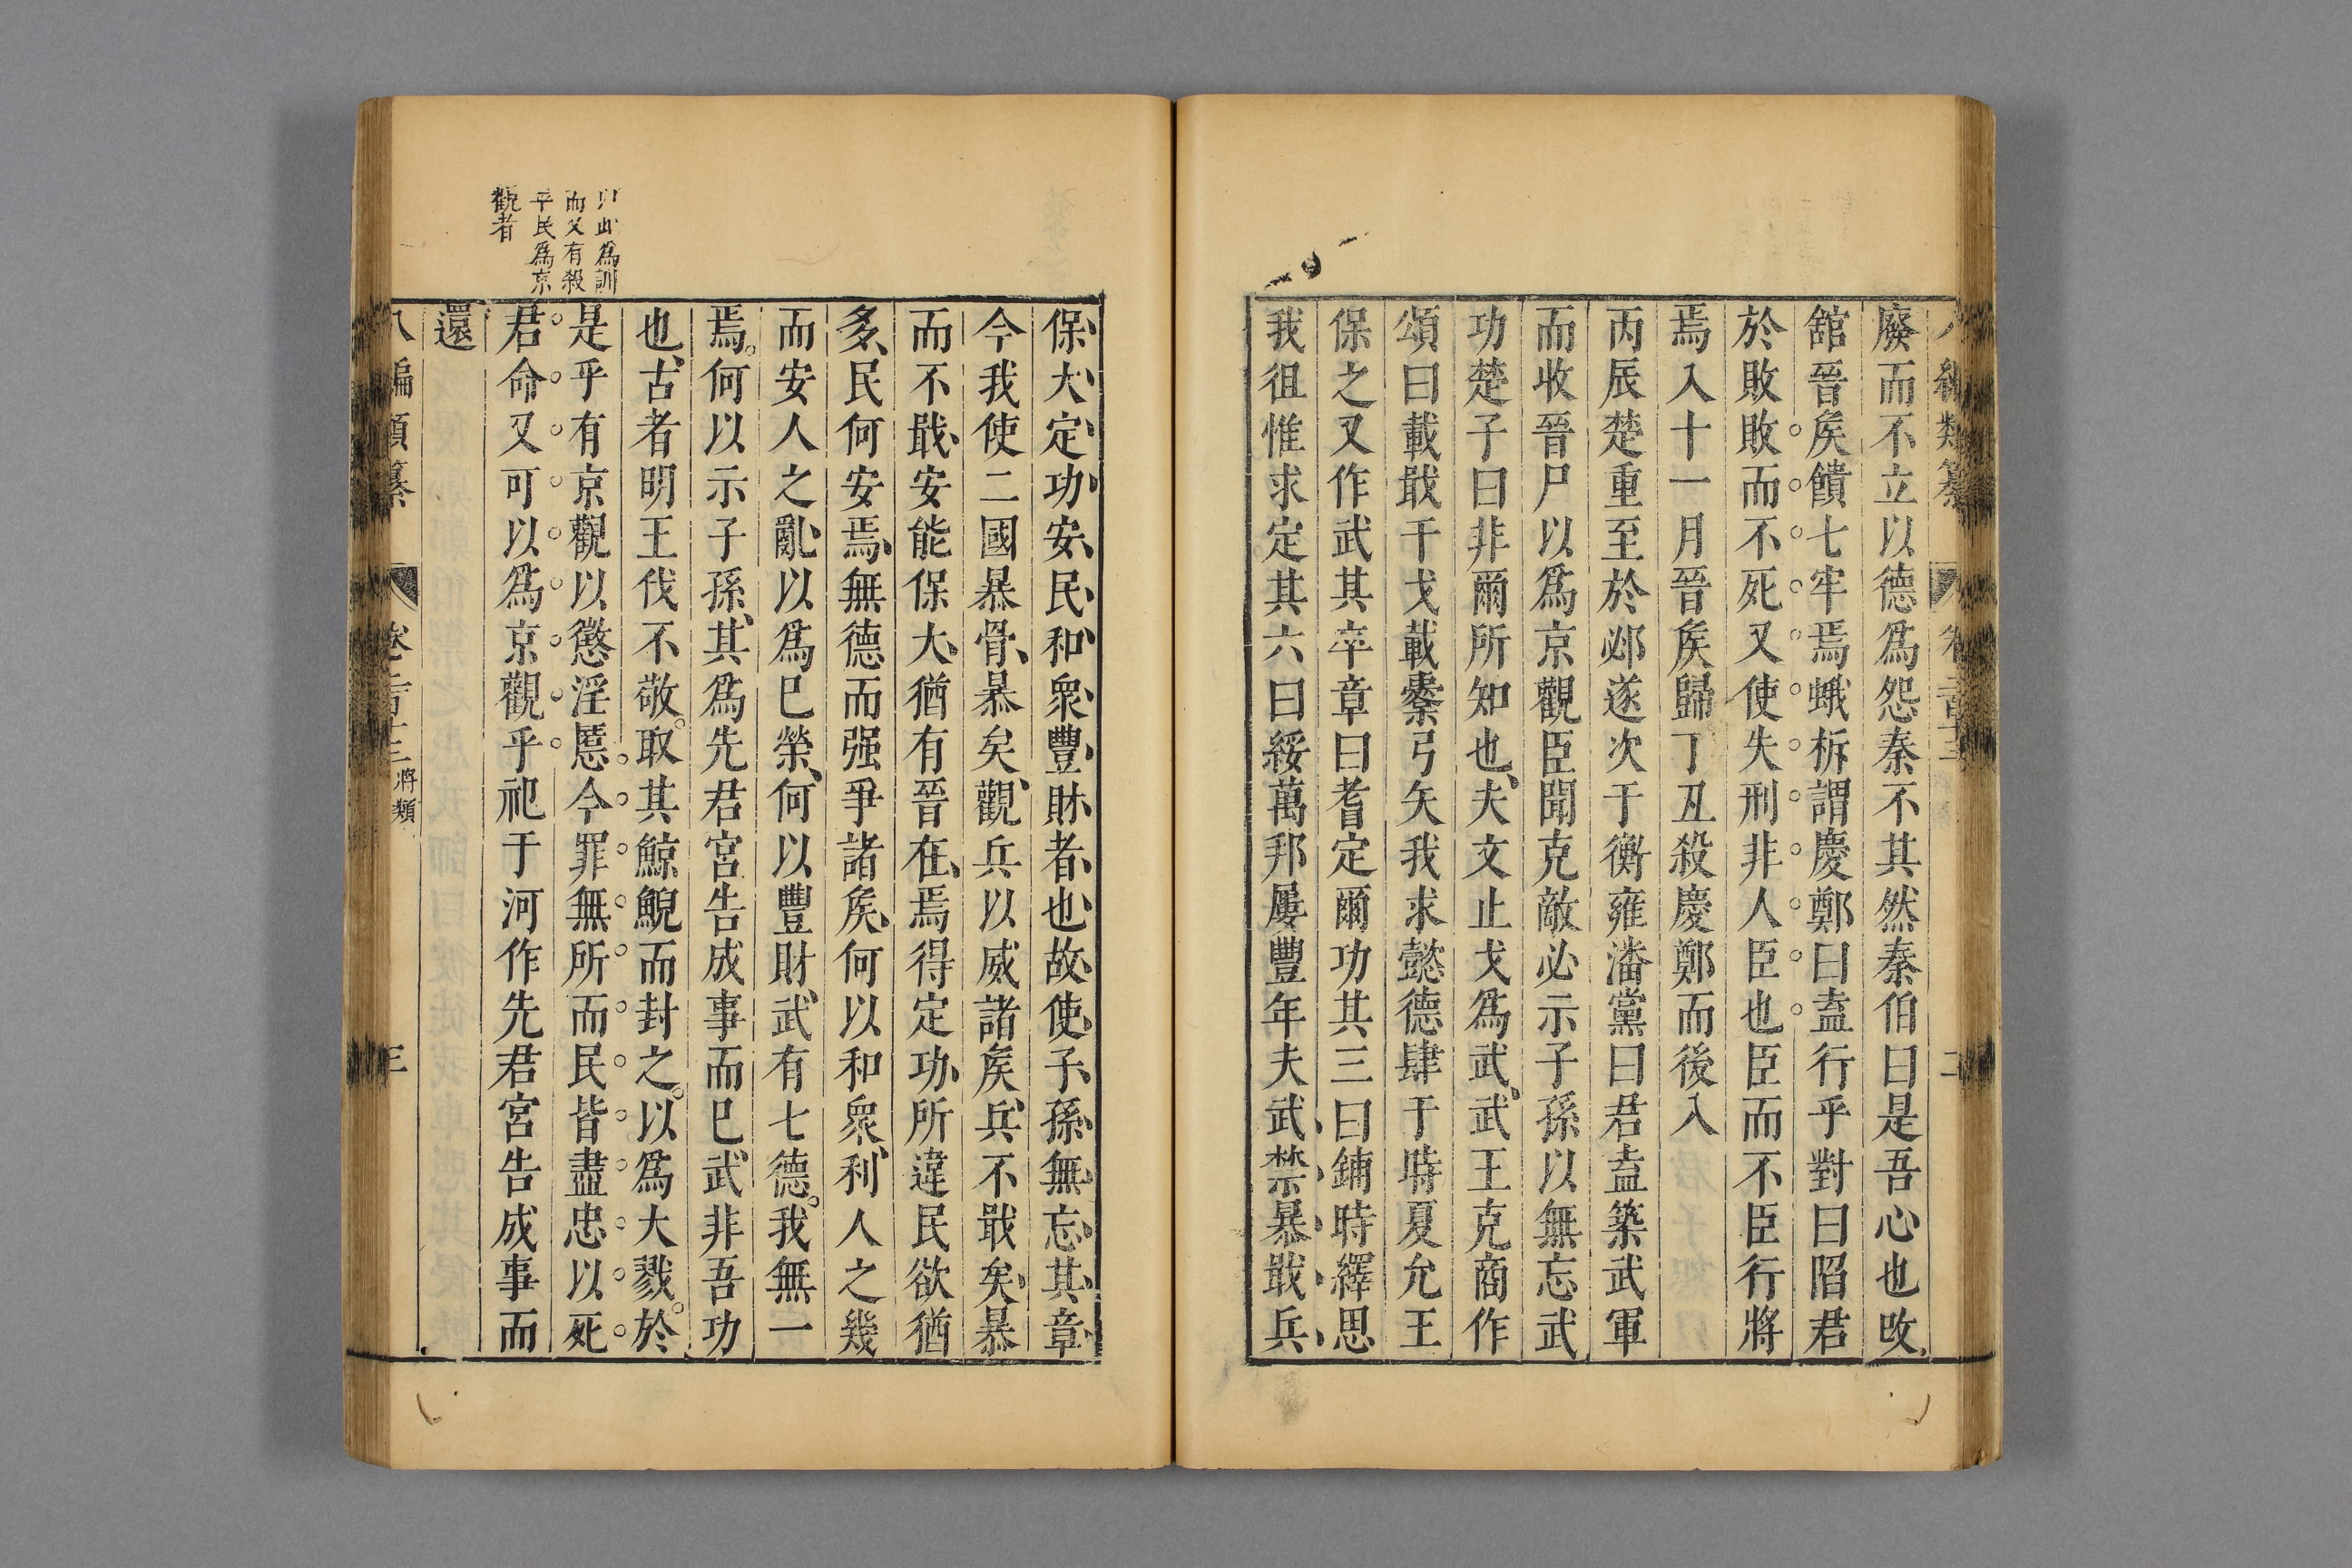 廢而不立以德爲怨秦不其然秦伯曰是吾心也改
舘晉矦饋七牢焉蛾柝謂慶鄭曰盍行乎對曰陷君
於敗敗而不死又使失刑非人臣也臣而不臣行將
焉入十一月晉矦歸丁丑殺慶鄭而後入
丙辰楚重至於邲遂次于衡雍潘黨曰君盍築武軍
而收晉尸以爲京觀臣聞克敵必示子孫以無忘武
功楚子曰非爾所知也夫文止戈爲武武王克商作
頌曰載戢干戈載櫜弓矢我求懿德肆于時夏允王
保之又作武其卒章曰耆定爾功其三曰鋪時繹思
我徂惟求定其六曰綏萬邦屢豐年夫武禁暴戢兵
保大定功安民和衆豐財者也故使子孫無忘其章
今我使二國暴骨暴矣觀兵以威諸矦兵不戢矣暴
而不戢安能保大猶有晉在焉得定功所違民欲猶
多民何安焉無德而强爭諸矦何以和衆利人之幾
而安人之亂以爲已榮何以豐財武有七德我無一
焉何以示子孫其爲先君宮告成事而已武非吾功
也古者明王伐不敬取其鯨鯢而封之以爲大戮於
是乎有京觀以懲淫慝今罪無所而民皆盡忠以死
君命又可以爲京觀乎祀于河作先君宮告成事而
還
以此爲訓
而又有殺
平民爲京
觀者
八編類纂 卷之二百十三 將類 三